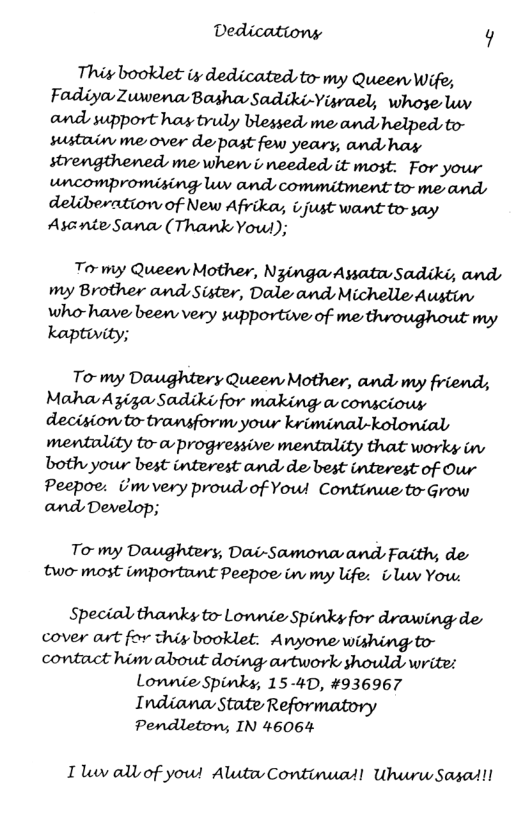 Dedications 4
This booklet is dedicated to my Queen Wife,
Fadiya Zuwena Basha Sadiki-Yisrael, whose luv
and support has truly blessed me and helped to
sustain me over de past few years, and has
strengthened me when i needed it most. For your
uncompromising luv and commitment to me and
deliberation of New Afrika, i just want to say
Asante Sana (Thank You!);
To my Queen Mother, Nzinga Assata Sadiki, and
my Brother and Sister, Dale and Michelle Austin
who have been very supportive of me throughout my
kaptivity;
To my Daughters Queen Mother, and my friend,
Maha Aziza Sadiki for making a conscious
decision to transform your kriminal-kolonial
mentality to a progressive mentality that works in
both your best interest and de best interest of Our
Peepoe. i'm very proud of You! Continue to Grow
and Develop;
To my Daughters, Dai-Samona and Faith, de
two most important Peepoe in my life. i luv You.
Special thanks to Lonnie Spinks for drawing de
cover art for this booklet. Anyone wishing to
contact him about doing artwork should write:
Lonnie Spinks, 15-4D, #936967
Indiana State Reformatory
Pendleton, IN 46064
I luv all of you! Aluta Continua!! Uhuru Sasa!!!